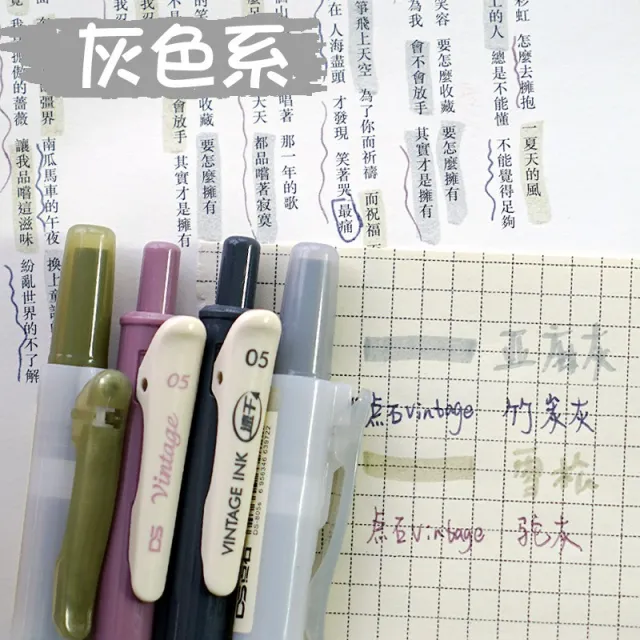 灰色系
彩虹 怎麼去擁抱 一夏天的風
上的人 總是不能懂 不能覺得足夠
笑容 要怎麼收藏 要怎麼擁有
為我 會不會放手 其實才是擁有
筆飛上天空 為了你而祈禱 而祝福
在人海盡頭 才發現 笑著哭 最痛
唱著 那一年的歌
天天 都品嚐著寂寞
收藏 要怎麼擁有
會放手 其實才是擁有
南瓜馬車的午夜 換上童話
的薔薇 讓我品嚐這滋味
紛亂世界的不了解
亚麻灰
点石vintage 竹炭灰
雪松
点石vintage 驼灰
05
Vintage
DS
05
速干
VINTAGE INK